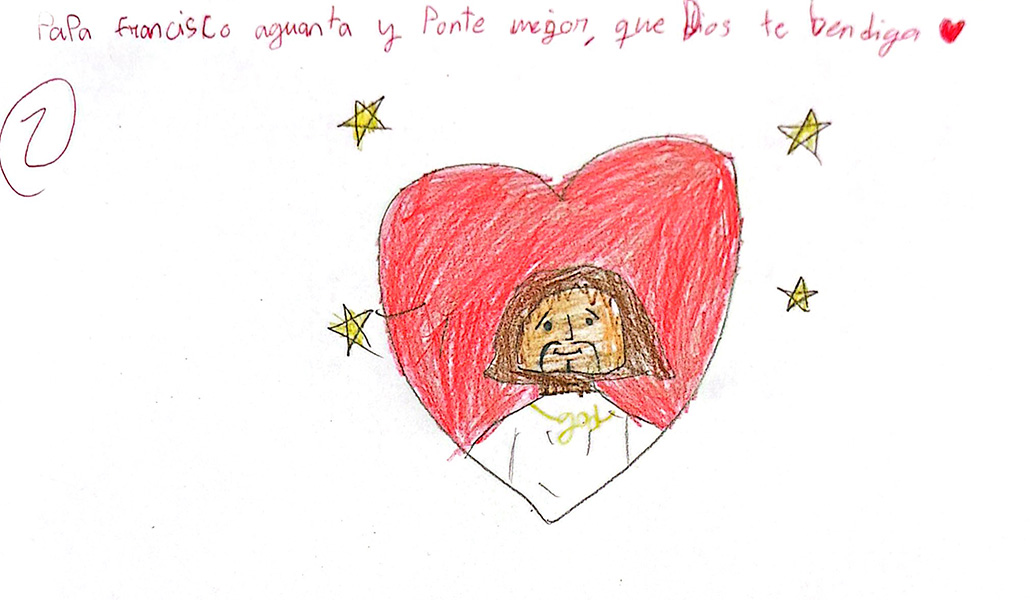 PaPa Francisco aguanta y Ponte mejor, que Dios te bendiga
2